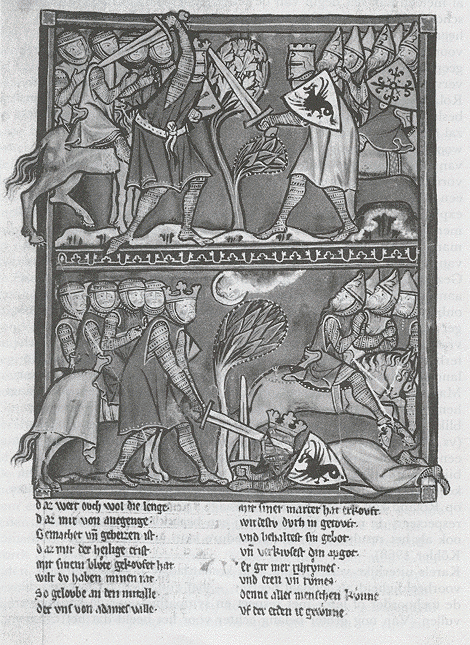 daz wert ouch wol die lenge.
daz mir von anegenge.
Gemachet vn̄ geheizen ist
daz mir der heilige crist
mit sinem blůte gekoufet hat
wilt du haben minen rat
so geloube an den mitalle
der vns von adames valle.
mit siner marter hat erkouft.
wirdestu durh in getouft.
vnd behaltest sin gebot.
vn̄ verkiusest din apgot.
Er git mer
vnd eren vn̄ růmes.
denne alles menschen kunne
vf der erden ie gewunne.